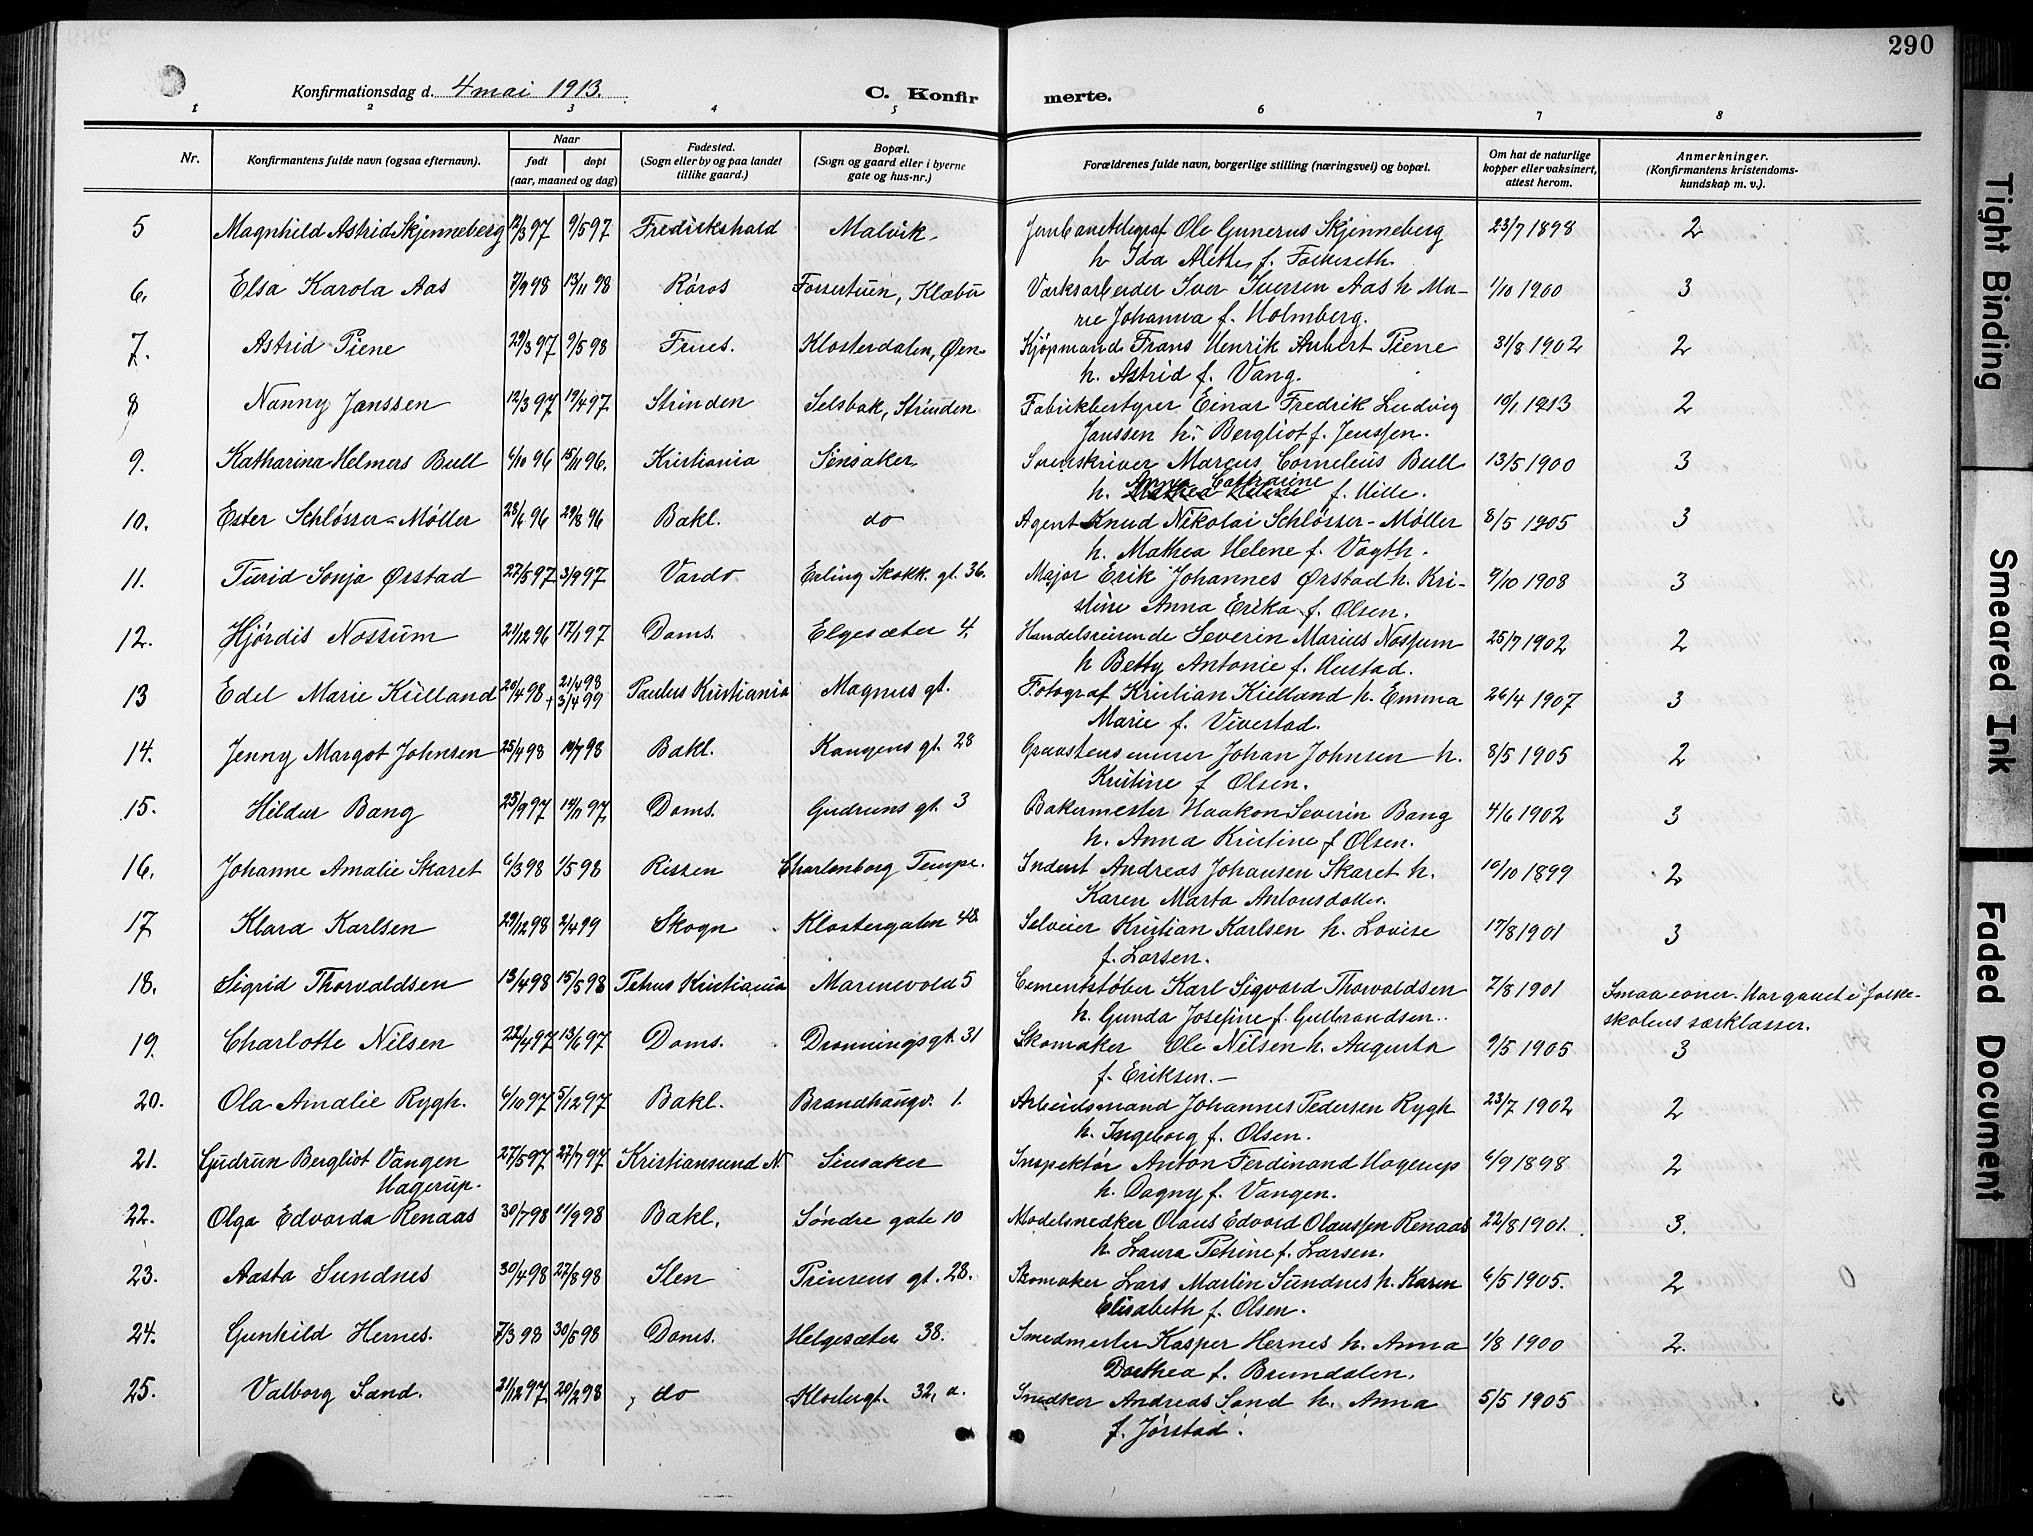 290
Konfirmationsdag d. 4 mai 1913.
C. Konfirmerte.
1 2 3 4 5 6 7 8
Nr. Konfirmantens fulde navn (ogsaa efternavn). Naar født døpt (aar, maaned og dag) Fødested. (Sogn eller by og paa landet tillike gaard.) Bopæl. (Sogn og gaard eller i byerne gate og hus-nr.) Forældrenes fulde navn, borgerlige stilling (næringsvei) og bopæl. Om hat de naturlige kopper eller vaksinert, attest herom. Anmerkninger. (Konfirmantens kristendomskundskap m. v.).
5 Magnhild Astrid Skjenneberg 12/3 97 9/5 97 Fredrikshald Malvik. Ole Gunerus Skjenneberg 23/7 1898 2
h Ida Alethe f. Folkeseth.
6. Elsa Karola Aas 7/9 98 13/11 98 Røros Klæbu Værksarbeider Iver Iversen Aas h Ma- 1/10 1900 3
rie Johanna f. Holmberg.
7. Astrid Piene 29/3 97 9/5 98 Frues. Klosterdalen, Øen Kjøpmand Frans Henrik Aubert Piene 31/8 1902 2
h. Astrid f. Vang.
8 Nanny Janssen 12/3 97 19/4 97 Strinden Selsbak, Strinden Fabrikbestyrer Einar Fredrik Ludvig 10/1 1913 2
Janssen h. Bergliot f. Jenssen.
9. Katharina Helmers Bull 6/10 96 15/11 96. Kristiania Sinsaker Sorenskriver Marcus Cornelius Bull 13/5 1900 3
h. Anna Cathrine f. Hille.
10. Ester Schlösser-Møller 28/6 96 29/8 96 Bakl. do Agent Knud Nikolai Schlösser-Møller 8/5 1905 3
h. Mathea Helene f. Vogth.
11. Turid Sonja Ørstad 27/5 97 3/9 97 Vardø Erling Skakk. gt. 36. Major Erik Johannes Ørstad h. Kri- 9/10 1908 3
stine Anna Erika f. Olsen.
12. Hjördis Nossum 21/12 96 17/1 97 Doms. Elgesæter 4. Handelsreisende Severin Marius Nossum 25/7 1902 2
h Betty Antonie f. Hustad.
13 Edel Marie Kielland 20/4 98 21/4 98 3/4 99 Paulus Kristiania Magnus gt. Fotograf Kristian Kielland h. Emma 26/4 1907 3
Marie f. Vivestad.
14. Jenny Margot Johnsen 25/4 98 10/7 98 Bakl. Kongens gt. 28 Johan Johnsen h. 8/5 1905 2
Kristine f Olsen.
15. Hildur Bang 25/9 97 14/11 97 Doms. Gudruns gt. 3 Bakermester Haakon Severin Bang 4/6 1902 3
h. Anna Kristine f Olsen.
16. Johanne Amalie Skaret 6/3 98 1/5 98 Rissen Charlenborg Tempe. Inderst Andreas Johansen Skaret h. 10/10 1899 2
Karen Marta Antonsdatter.
17 Klara Karlsen 29/12 98 2/4 99 Skogn Klostergaten 48. Selveier Kristian Karlsen h. Lovise 17/8 1901 3
f. Larsen.
18. Sigrid Thorvaldsen 13/4 98 15/5 98 Petrus Kristiania Marinevold 5 Cementstøber Karl Sigvard Thorvaldsen 2/8 1901 Smaa evner. Har gaaet i folke-
h. Gunda Josefine f. Gulbrandsen. skolens særklasser.
19. Charlotte Nilsen 22/4 97 13/6 97 Doms. Dronningsgt. 31 Skomaker Ole Nilsen h. Augusta 9/5 1905 3
f. Eriksen.
20. Ola Amalie Rygh. 6/10 97 5/12 97 Bakl. Brandhaugv. 1. Arbeidsmand Johannes Pedersen Rygh 23/7 1902 2
h. Ingeborg f. Olsen.
21. Gudrun Bergliot Vangen 27/5 97 27/7 97 Kristiansund N. Sinsaker Inspektør Anton Ferdinand Hagerup 6/9 1898 2
Hagerup. h. Dagny f. Vangen.
22. Olga Edvarda Renaas 30/7 98 11/9 98 Bakl. Søndre gate 10 Modelsnedker Olaus Edvard Olaussen Renaas 22/8 1901. 3.
h. Laura Petrine f. Larsen.
23. Aasta Sundnes 30/4 98 27/8 98 Ilen Prinsens gt. 28. Skomaker Lars Martin Sundnes h. Karen 6/5 1905. 2
Elisabeth f. Olsen.
24. Gunhild Hernes. 7/3 98 30/5 98 Doms. Helgesæter 38. Smedmester Kasper Hernes h. Anna 1/8 1900 2.
Dorthea f. Bremdalen.
25. Valborg Sand. 31/12 97 20/2 98 do Klostergt. 32, a. Snedker Andreas Sand h. Anna 5/5 1905
f. Jørstad.
Tight Binding
Smeared Ink
Faded Document